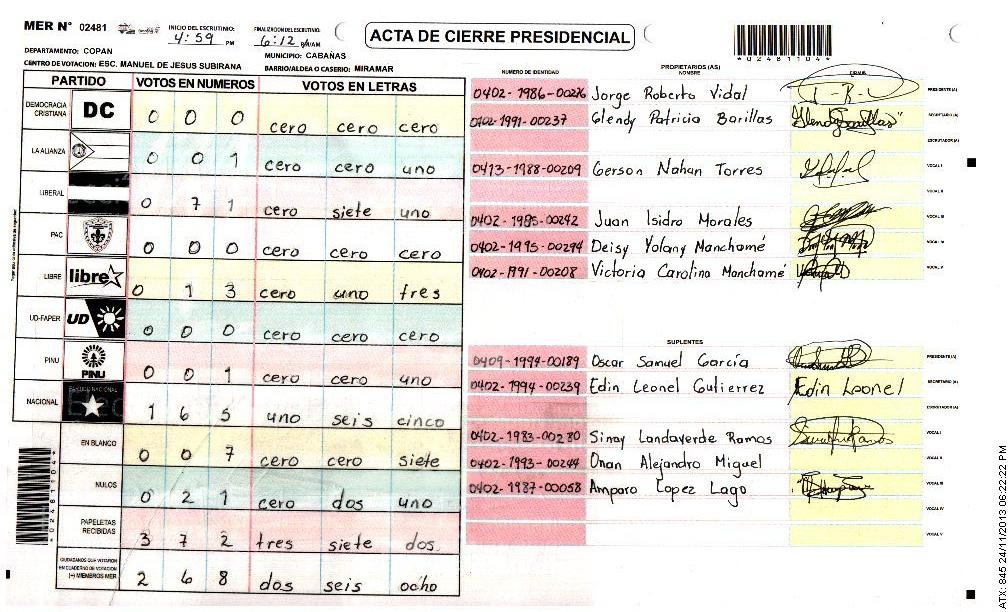 MER N° 02481
INICIO DEL ESCRUTINIO: 4:59 PM
FINALIZACION DEL ESCRUTINIO: 6:12
ACTA DE CIERRE PRESIDENCIAL
*02481104*
DEPARTAMENTO: COPAN
MUNICIPIO: CABAÑAS
CENTRO DE VOTACION: ESC. MANUEL DE JESUS SUBIRANA
BARRIO/ALDEA O CASERIO: MIRAMAR
PARTIDO VOTOS EN NUMEROS VOTOS EN LETRAS
DEMOCRACIA CRISTIANA DC 0 0 0 cero cero cero
LA ALIANZA 0 0 1 cero cero uno
LIBERAL 0 7 1 cero siete uno
PAC 0 0 0 cero cero cero
LIBRE libre 0 1 3 cero uno tres
UD-FAPER UD 0 0 0 cero cero cero
PINU PINU 0 0 1 cero cero uno
NACIONAL 1 6 5 uno seis cinco
EN BLANCO 0 0 7 cero cero siete
NULOS 0 2 1 cero dos uno
PAPELETAS RECIBIDAS 3 7 2 tres siete dos
CIUDADANOS QUE VOTARON EN CUADERNO DE VOTACION (-) MIEMBROS MER 2 6 8 dos seis ocho
*02481104*
PROPIETARIOS (AS)
NUMERO DE IDENTIDAD NOMBRE FIRMA
0402-1986-00276 Jorge Roberto Vidal PRESIDENTE (A)
0402-1991-00237 Glendy Patricia Borillas SECRETARIO (A)
ESCRUTADOR (A)
0413-1988-00209 Gerson Nahan Torres VOCAL I
VOCAL II
0402-1985-00242 Juan Isidro Morales VOCAL III
0402-1995-00294 Deisy Yolany Manchamé VOCAL IV
0402-1991-00208 Victoria Carolina Manchamé VOCAL V
SUPLENTES
0409-1994-00189 Oscar Samuel García PRESIDENTE (A)
0402-1994-00239 Edin Leonel Gutierrez Edin Leonel SECRETARIO (A)
ESCRUTADOR (A)
0402-1983-00280 Sinay Landaverde Ramos VOCAL I
0402-1993-00244 Onan Alejandro Miguel VOCAL II
0402-1987-00058 Amparo Lopez Lago VOCAL III
VOCAL IV
VOCAL V
ATX: 845 24/11/2013 06:22:22 PM